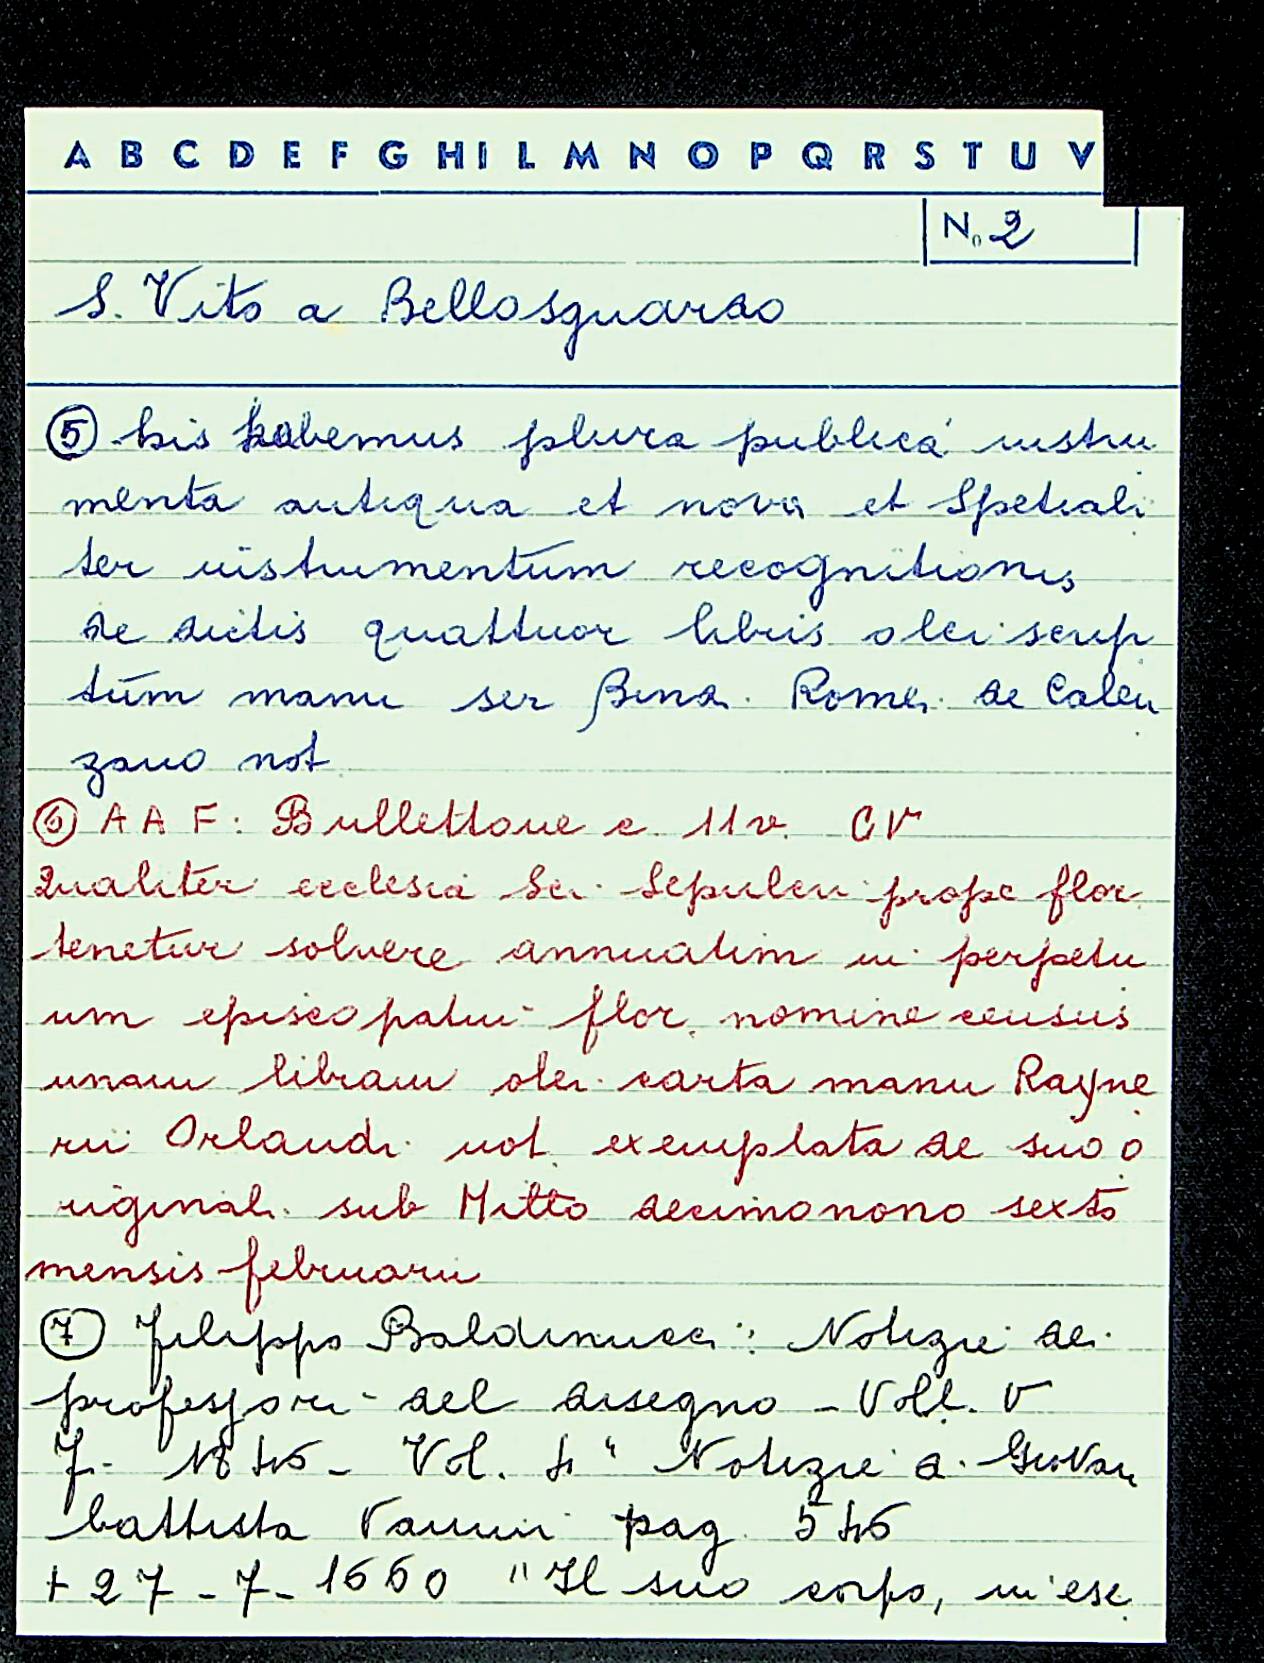 A B C D E F G H I L M N O P Q R S T U V
N. 2
S. Vito a Bellosguardo
⑤ his habemus plura publica instru
menta antiqua et nova et Spetiali
ter instrumentum recognitionis
de dictis quattuor libris olei scrip
tum manu ser Bind. Rome. de Calen
zano not
⑥ A A F: Bullettone c. 11v. CV
Qualiter ecclesia Sci. Sepulcri prope flor.
tenetur solvere annuatim in perpetu
um episcopatui flor. nomine census
unam libram olei carta manu Rayne
rii Orlandi not. exemplata de suo o
riginali sub Mitto decimonono sexto
mensis februarii
⑦ Filippo Baldinucci: Notizie dei
professori del disegno - Voll. V
F. 1846 - Vol. 4° Notizie di Giovan
battista Vannini pag. 546
+ 27-7-1660 "Il suo corpo, in ese